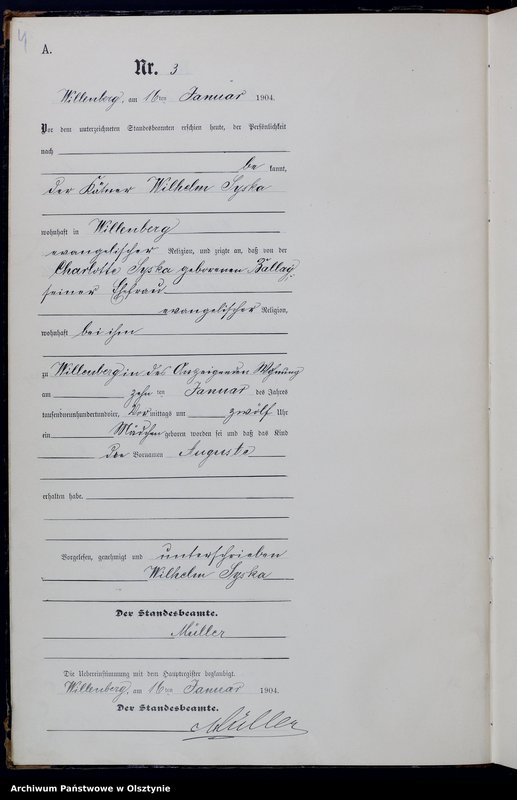 4
A.
Nr. 3
Willenberg, am 16ten Januar 1904.
Vor dem unterzeichneten Standesbeamten erschien heute, der Persönlichkeit
nach
be kannt,
der Kätner Wilhelm Syska
wohnhaft in Willenberg
evangelischer Religion, und zeigte an, daß von der
Charlotte Syska geborenen Ballay,
seiner Ehefrau
evangelischer Religion,
wohnhaft bei ihm
zu Willenberg in des Anzeigenden Wohnung
am zehn ten Januar des Jahres
tausendneunhundertundvier, Vor mittags um zwölf Uhr
ein Mädchen geboren worden sei und daß das Kind
den Vornamen Auguste
erhalten habe.
Vorgelesen, genehmigt und unterschrieben
Wilhelm Syska
Der Standesbeamte.
Müller
Die Uebereinstimmung mit dem Hauptregister beglaubigt.
Willenberg, am 16ten Januar 1904.
Der Standesbeamte.
Müller
Archiwum Państwowe w Olsztynie